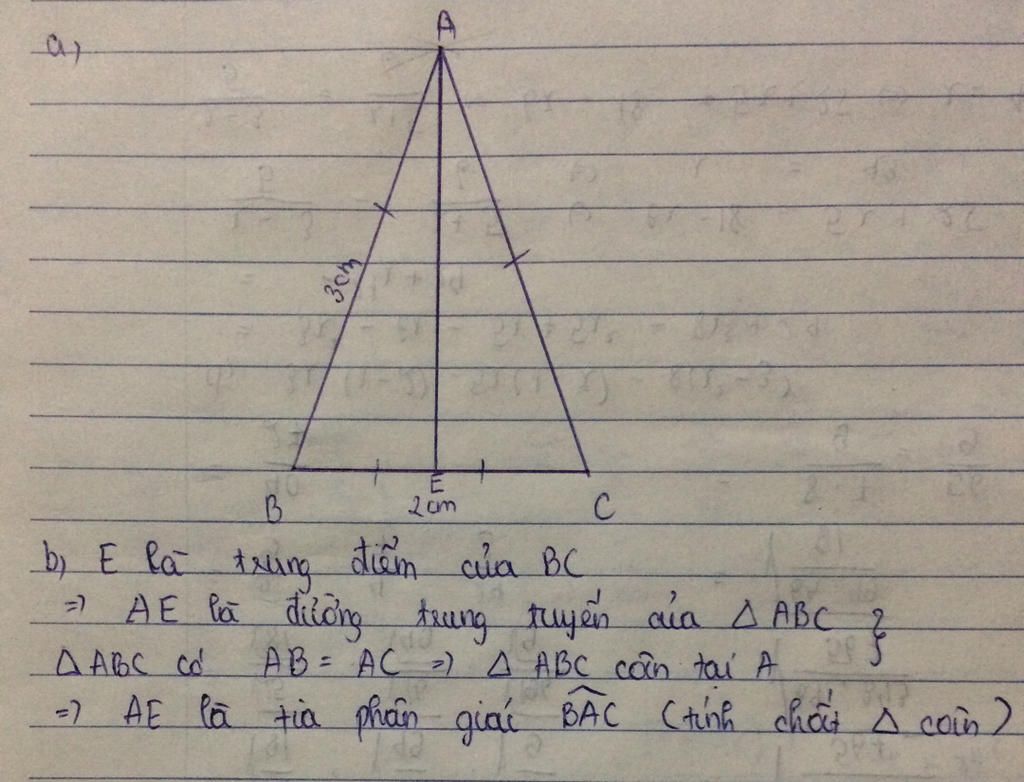 a,
A
3cm
B
E
2cm
C
b, E là trung điểm của BC
=> AE là đường trung tuyến của △ ABC }
△ ABC có AB = AC => △ ABC cân tại A
=> AE là tia phân giác \widehat{BAC} (tính chất △ cân)